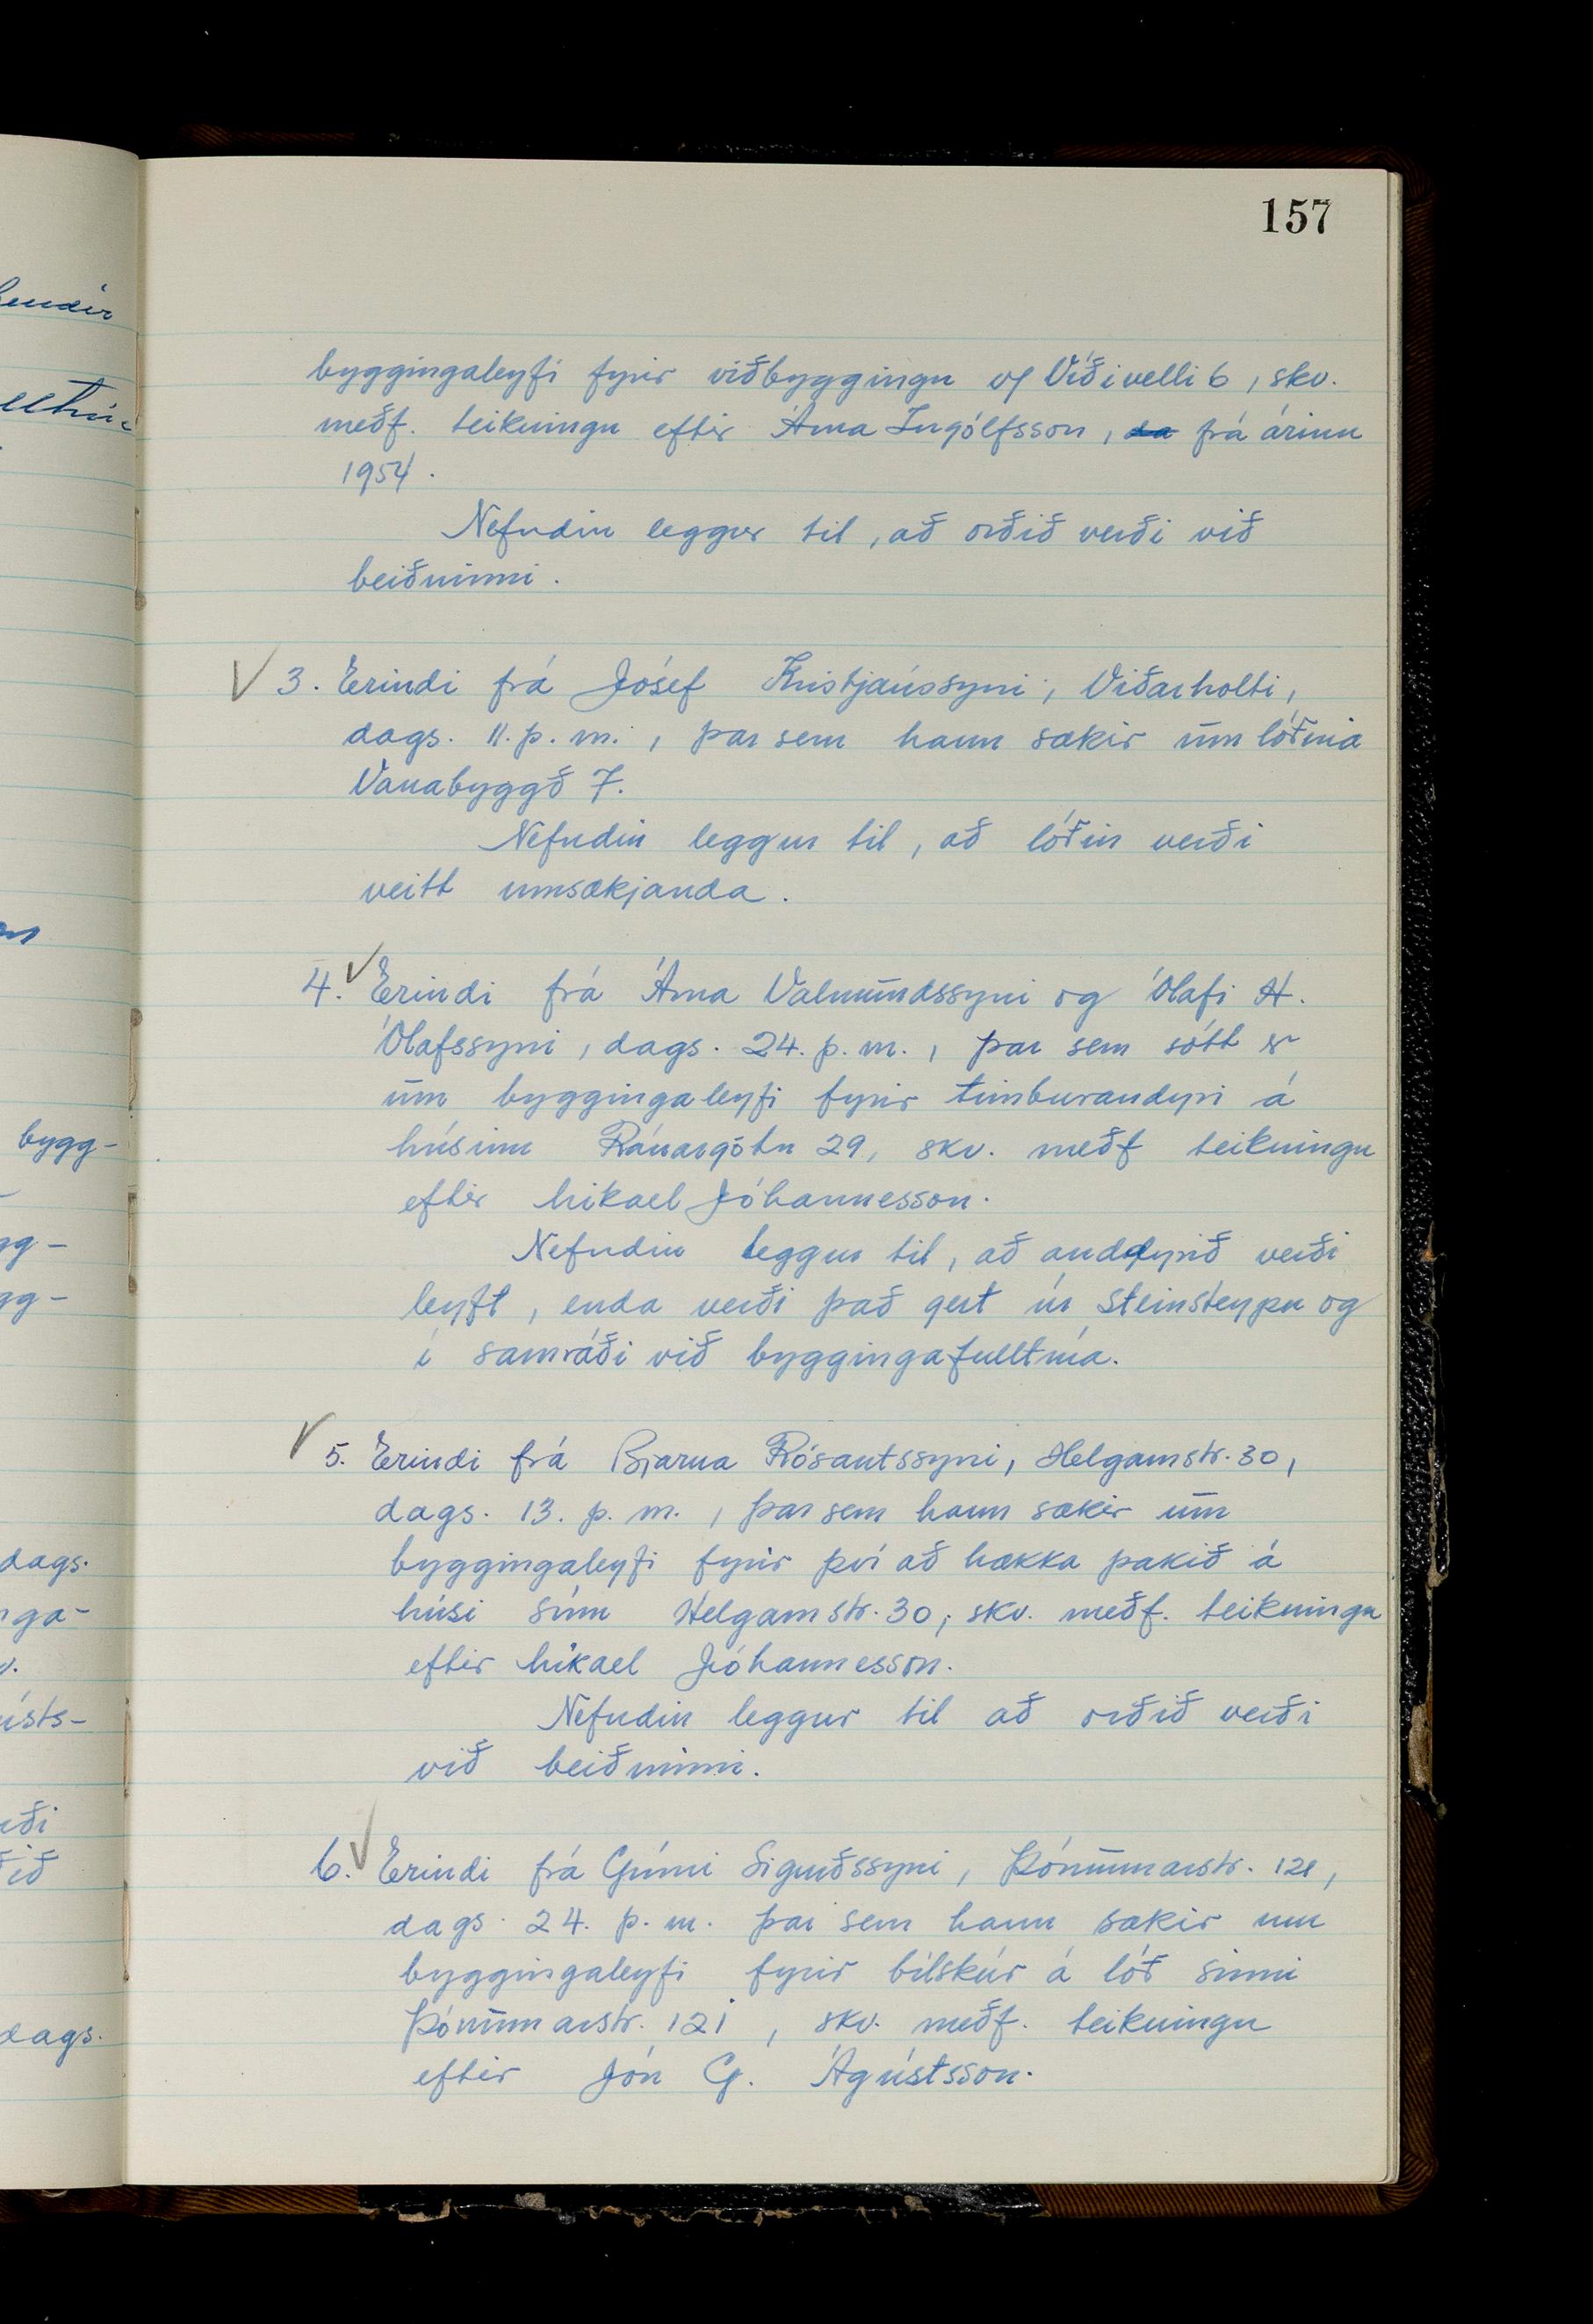 157
byggingaleyfi fyrir viðbyggingu v/ Víðivelli 6, skv.
meðf. teikningu eftir Árna Ingólfsson, da frá árinu
1954.
Nefndin leggur til, að orðið verði við
beiðninni.
3. Erindi frá Jósef Kristjánssyni, Viðarholti,
dags. 11. þ. m., þar sem hann sækir um lóðina
Vanabyggð 7.
Nefndin leggur til, að lóðin verði
veitt umsækjanda.
4. Erindi frá Árna Valmundssyni og Ólafi H.
Ólafssyni, dags. 24. þ. m., þar sem sótt er
um byggingaleyfi fyrir timburandyri á
húsinu Ránargötu 29, skv. meðf teikningu
eftir Mikael Jóhannesson.
Nefndin leggur til, að anddyrið verði
leyft, enda verði það gert úr steinsteypu og
í samráði við byggingafulltrúa.
5. Erindi frá Bjarna Rósantssyni, Helgamstr. 30,
dags. 13. þ. m., þar sem hann sækir um
byggingaleyfi fyrir því að hækka þakið á
húsi sínu Helgamstr. 30, skv. meðf. teikningu
eftir Mikael Jóhannesson.
Nefndin leggur til að orðið verði
við beiðninni.
6. Erindi frá Grími Sigurðssyni, Þórunnarstr. 121,
dags. 24. þ. m. þar sem hann sækir um
byggingaleyfi fyrir bílskúr á lóð sinni
Þórunnarstr. 121, skv. meðf. teikningu
eftir Jón G. Ágústsson.
bygg-
gg-
gg-
dags.
nga-
ústs-
dags.